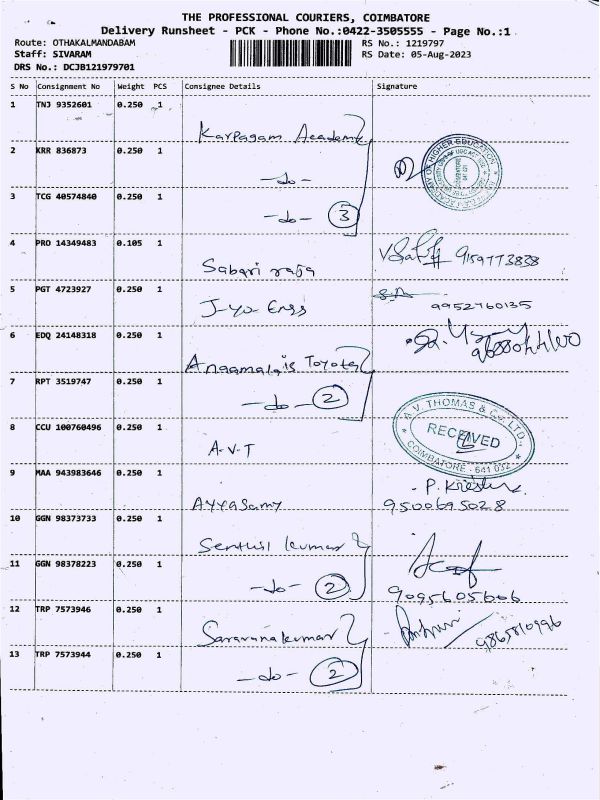 THE PROFESSIONAL COURIERS, COIMBATORE
Delivery Runsheet - PCK - Phone No.:0422-3505555 - Page No.:1
Route: OTHAKALMANDABAM
RS No.: 1219797
Staff: SIVARAM
RS Date: 05-Aug-2023
DRS No.: DCJB121979701
S No Consignment No Weight PCS Consignee Details Signature
1 TNJ 9352601 0.250 1
Karpagam Academy
2 KRR 836873 0.250 1
-do-
3 TCG 40574840 0.250 1
-do- 3
4 PRO 14349483 0.105 1
Sabari raja 9159773838
5 PGT 4723927 0.250 1
J-yo Engs 9952760135
6 EDQ 24148318 0.250 1
Anaamalais Toyota
7 RPT 3519747 0.250 1
-do- 2
8 CCU 100760496 0.250 1
A.V.T
A.V. THOMAS & CO. LTD.
RECEIVED
COIMBATORE - 641 032
9 MAA 943983646 0.250 1
Ayyasamy 9500695028
10 GGN 98373733 0.250 1
Senthil kumar
11 GGN 98378223 0.250 1
-do- 2 9095605606
12 TRP 7573946 0.250 1
Saravanakumar 9865810996
13 TRP 7573944 0.250 1
-do- 2